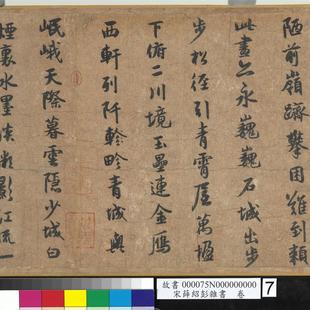 陋前嶺躋攀困難到頼
此盡永巍巍石城出步
步松徑引青霄屋萬楹
下俯二川境玉壘連金鴈
西軒列阡軫畛青城與
岷峨天際暮雲隱少城白
煙裏水墨淡影江流一
故書 000075N000000000
宋薛紹彭雜書 卷
7